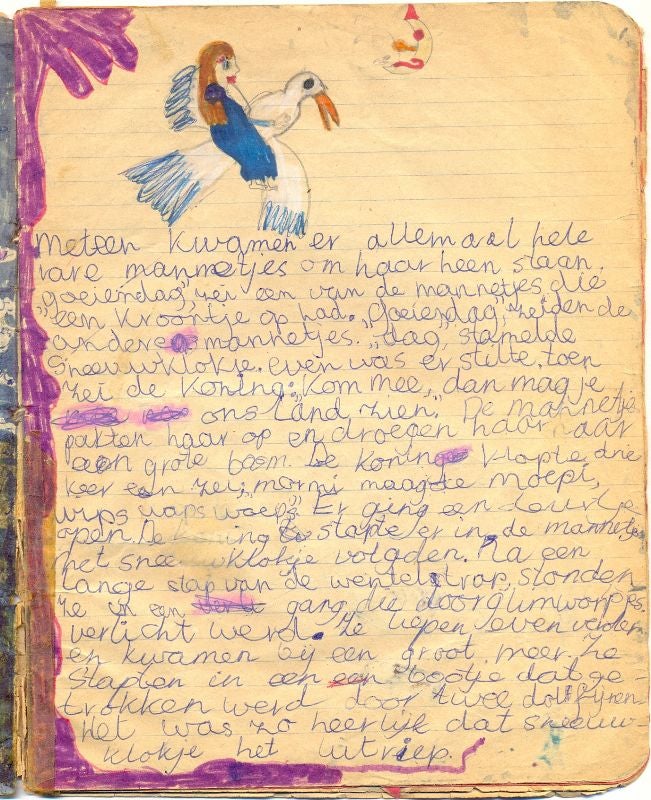 meteen kwamen er allemaal hele
rare mannetjes om haar heen staan.
"goeiendag", zei een van de mannetjes die
een kroontje op had. "Goeiendag," zeiden de
andere mannetjes. "dag", stamelde
Sneeuwklokje. even was er stilte, toen
zei de koning: "Kom mee, dan mag je
ons land zien." De mannetjes
pakten haar op en droegen haar naar
een grote boom. De koning klopte drie
keer en zei, "mormi maagde moepi,
wips waps woeps". Er ging een deurtje
open. De koning stapte er in, de mannetjes
met sneeuwklokje volgden. Na een
lange stap van de wenteltrap, stonden
ze in een gang, die door glimworpjes
verlicht werd. Ze liepen even verder
en kwamen bij een groot meer. Ze
stapten in een bootje dat ge-
trokken werd door twee dolfijnen.
Het was zo heerlijk dat sneeuw-
klokje het uitriep.